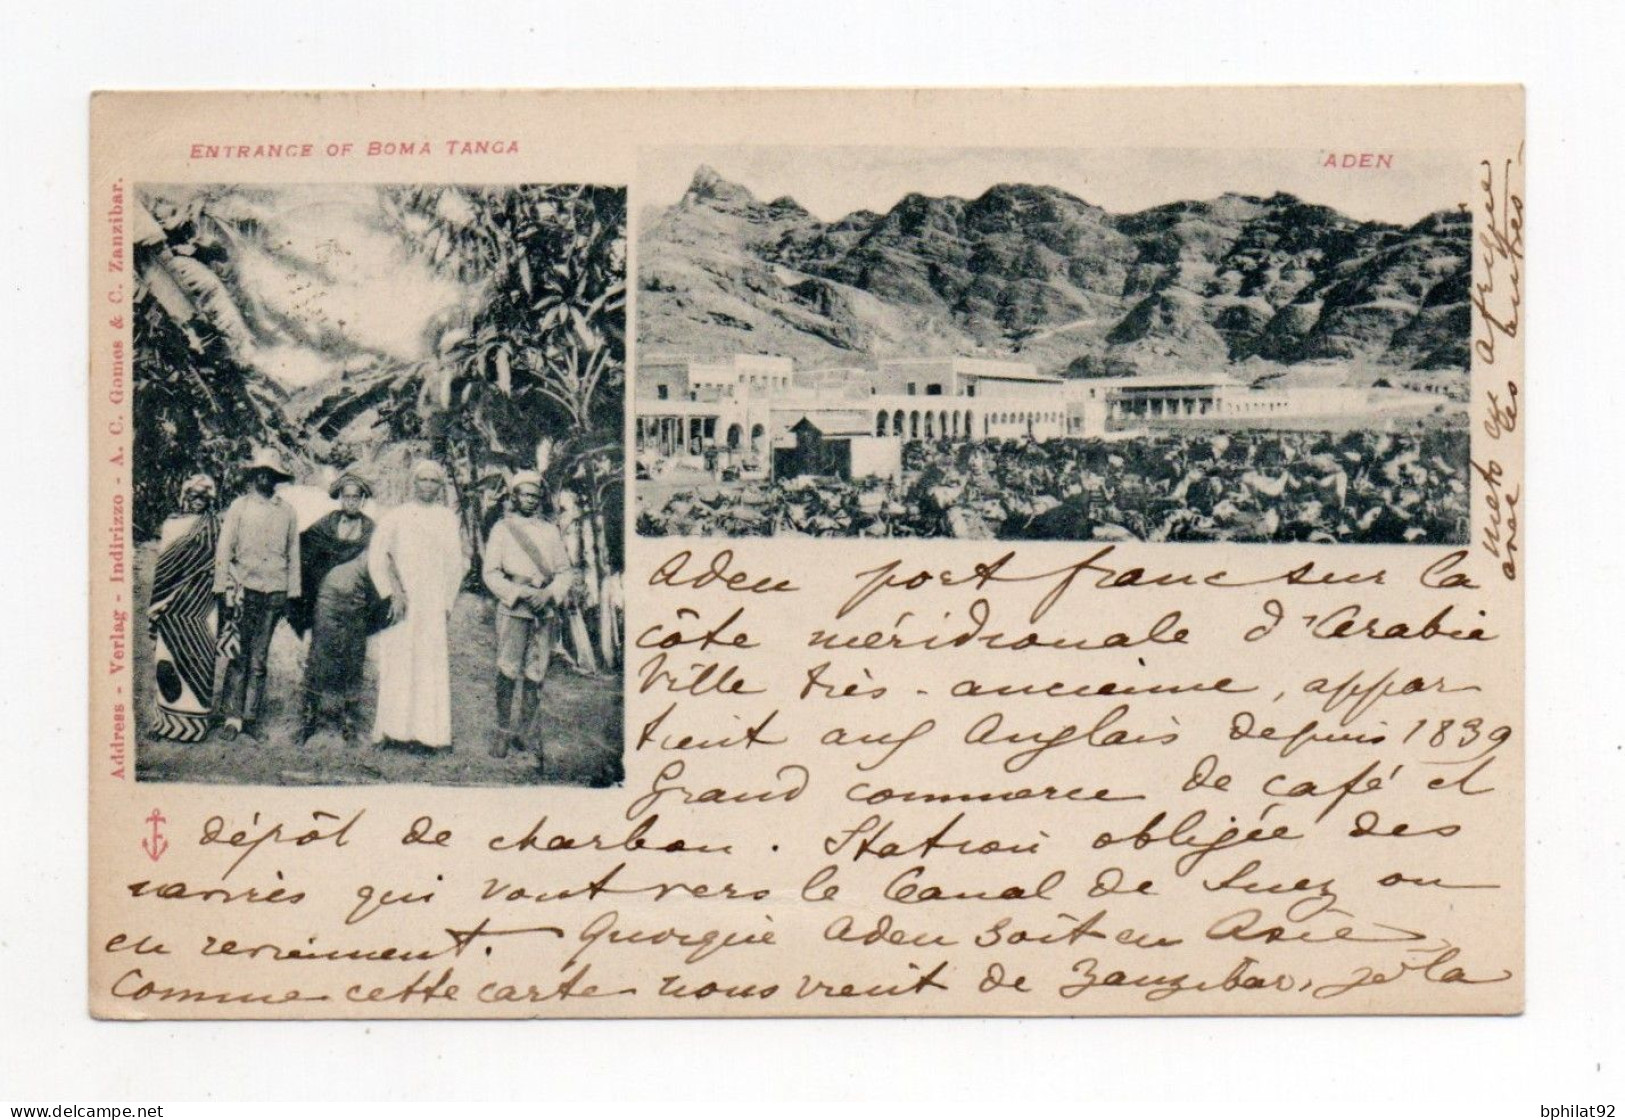 ENTRANCE OF BOMA TANGA
ADEN
Address - Verlag - Indirizzo - A. C. Gomes & C. Zanzibar.
Aden port franc sur la
côte méridionale d'Arabie
Ville très-ancienne, appar
tient aux Anglais depuis 1839
Grand commerce de café et
dépôt de charbon. Station obligée des
navires qui vont vers le Canal de Suez ou
en reviennent. Quoique Aden soit en Asie,
Comme cette carte nous vient de Zanzibar, je la
mets en Afrique
avec les autres-
bphilat92